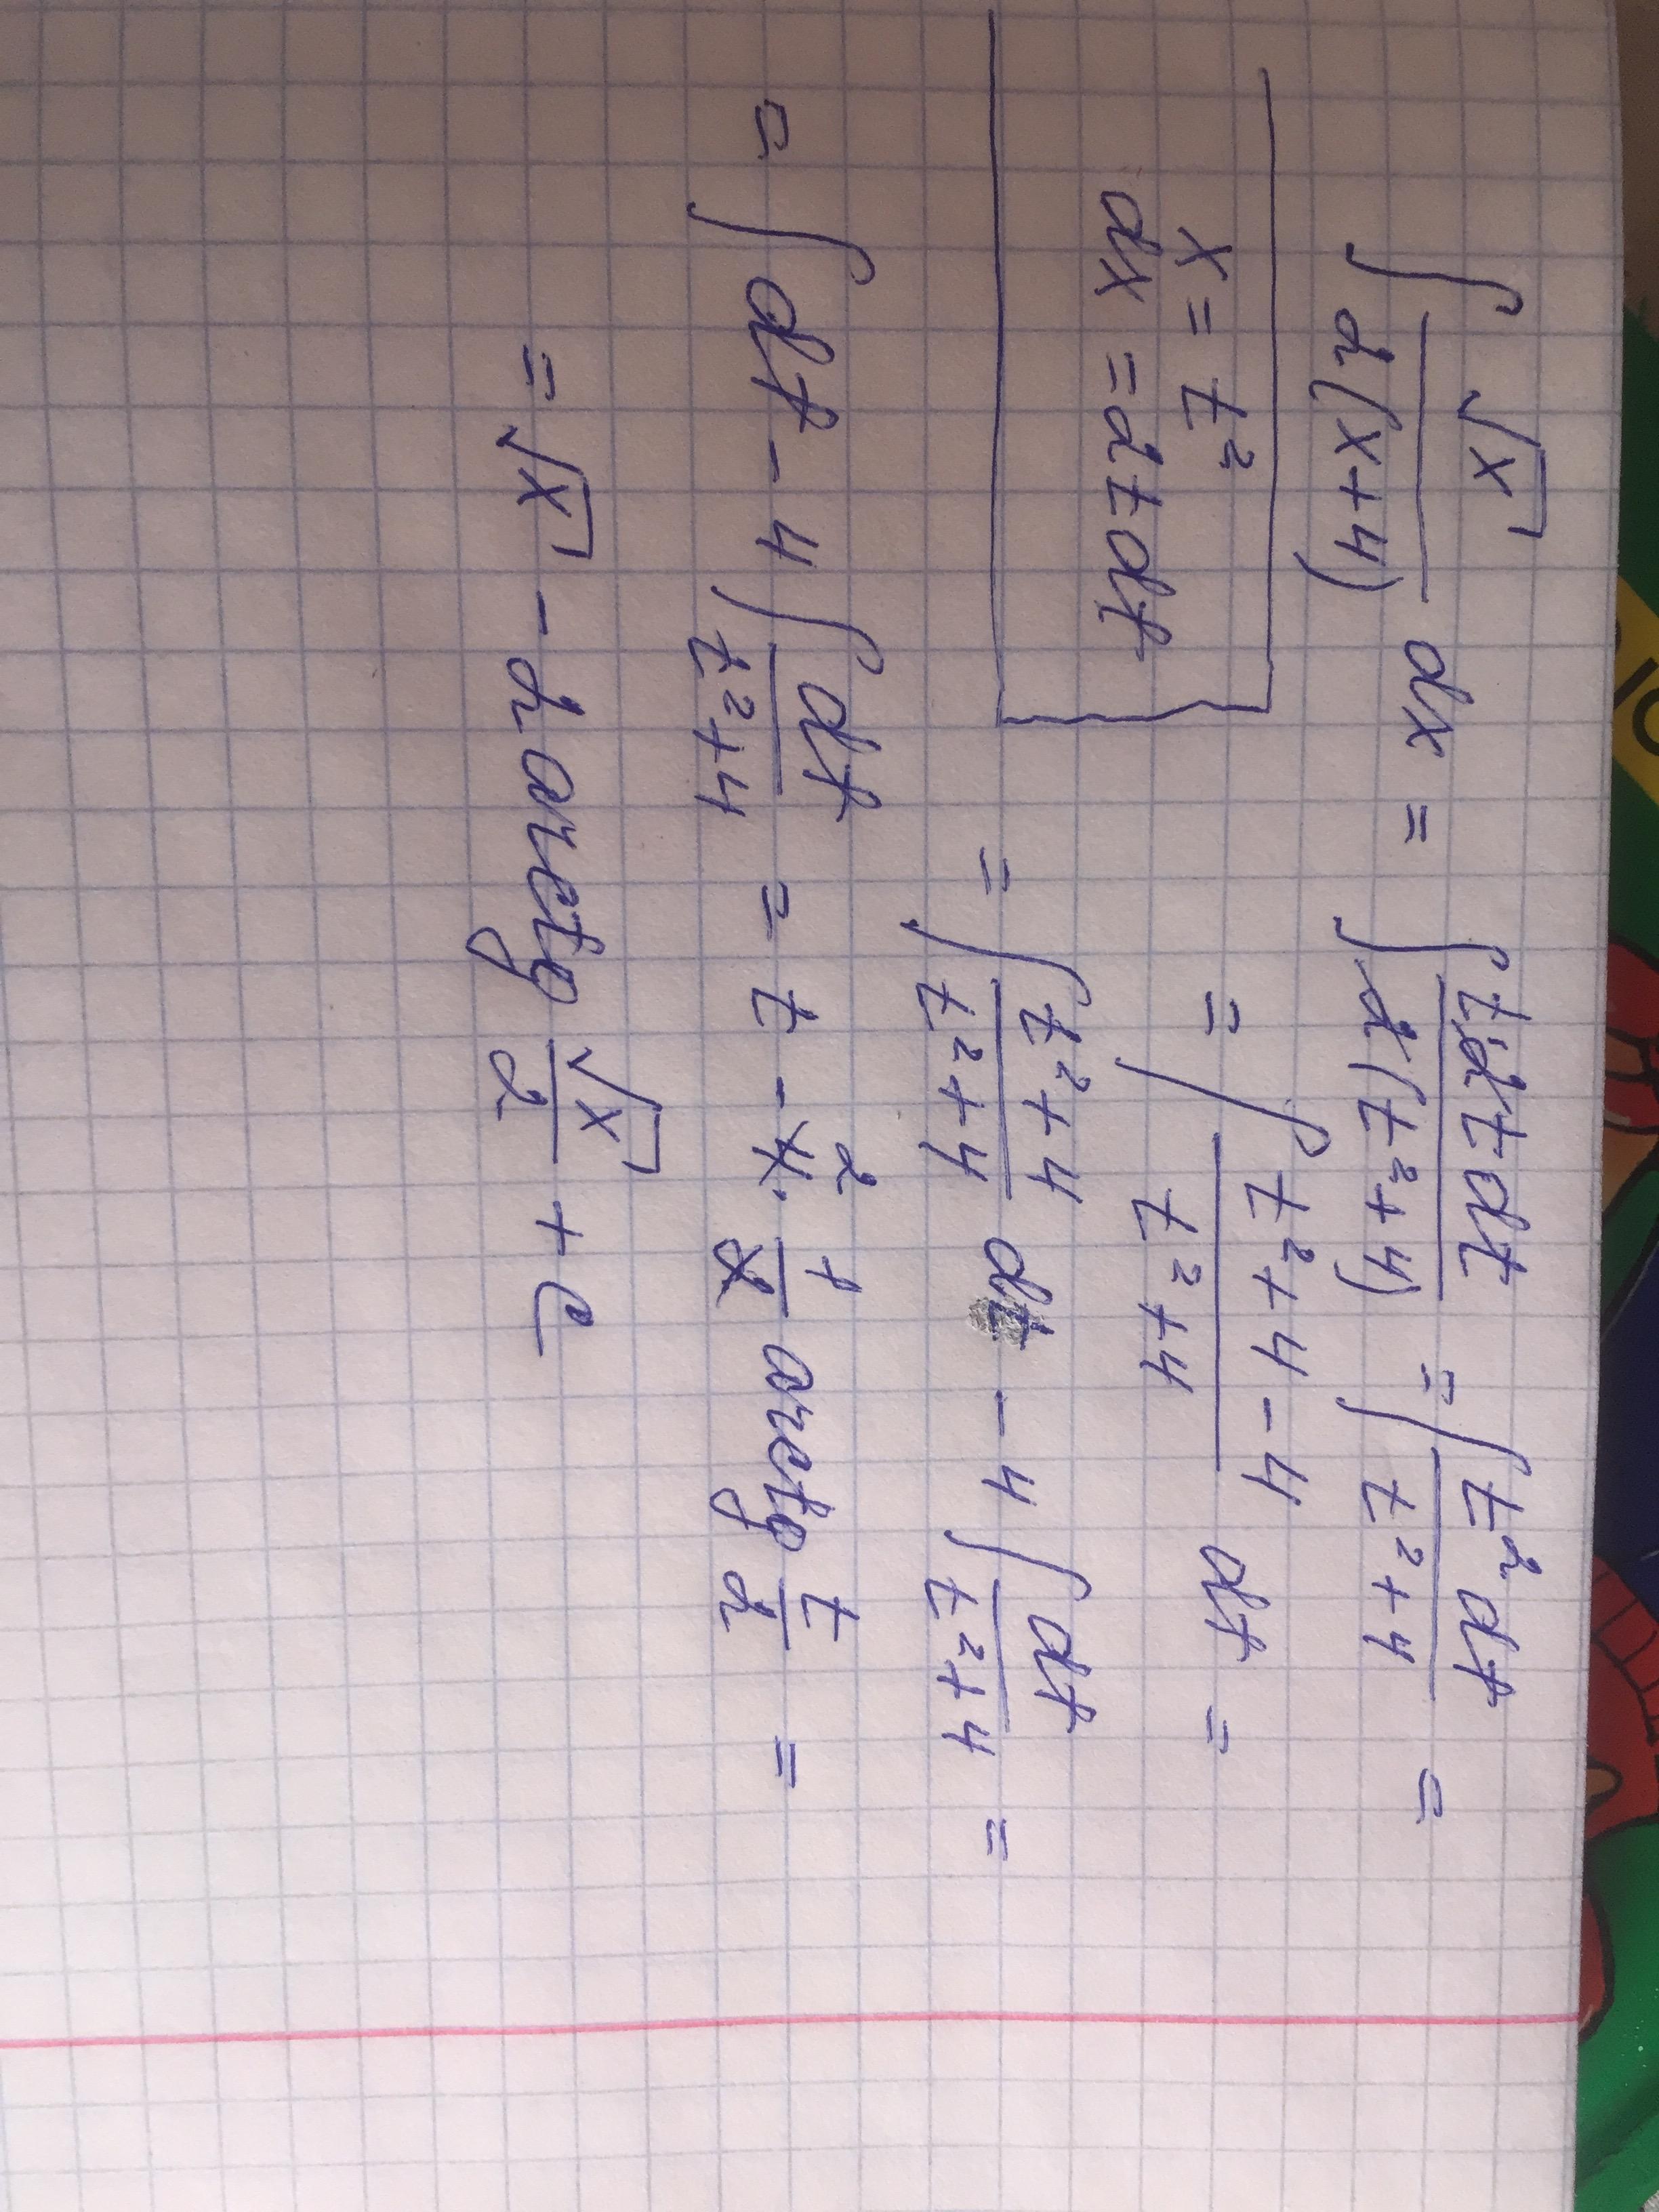 ∫ √x / 2(x+4) dx = ∫ t·2t dt / 2(t²+4) = ∫ t² dt / t²+4 =
x = t²
dx = 2t dt
= ∫ t²+4-4 / t²+4 dt =
= ∫ t²+4 / t²+4 dt - 4 ∫ dt / t²+4 =
= ∫ dt - 4 ∫ dt / t²+4 = t - 4 2 · 1/2 arctg t/2 =
= √x - 2 arctg √x/2 + C